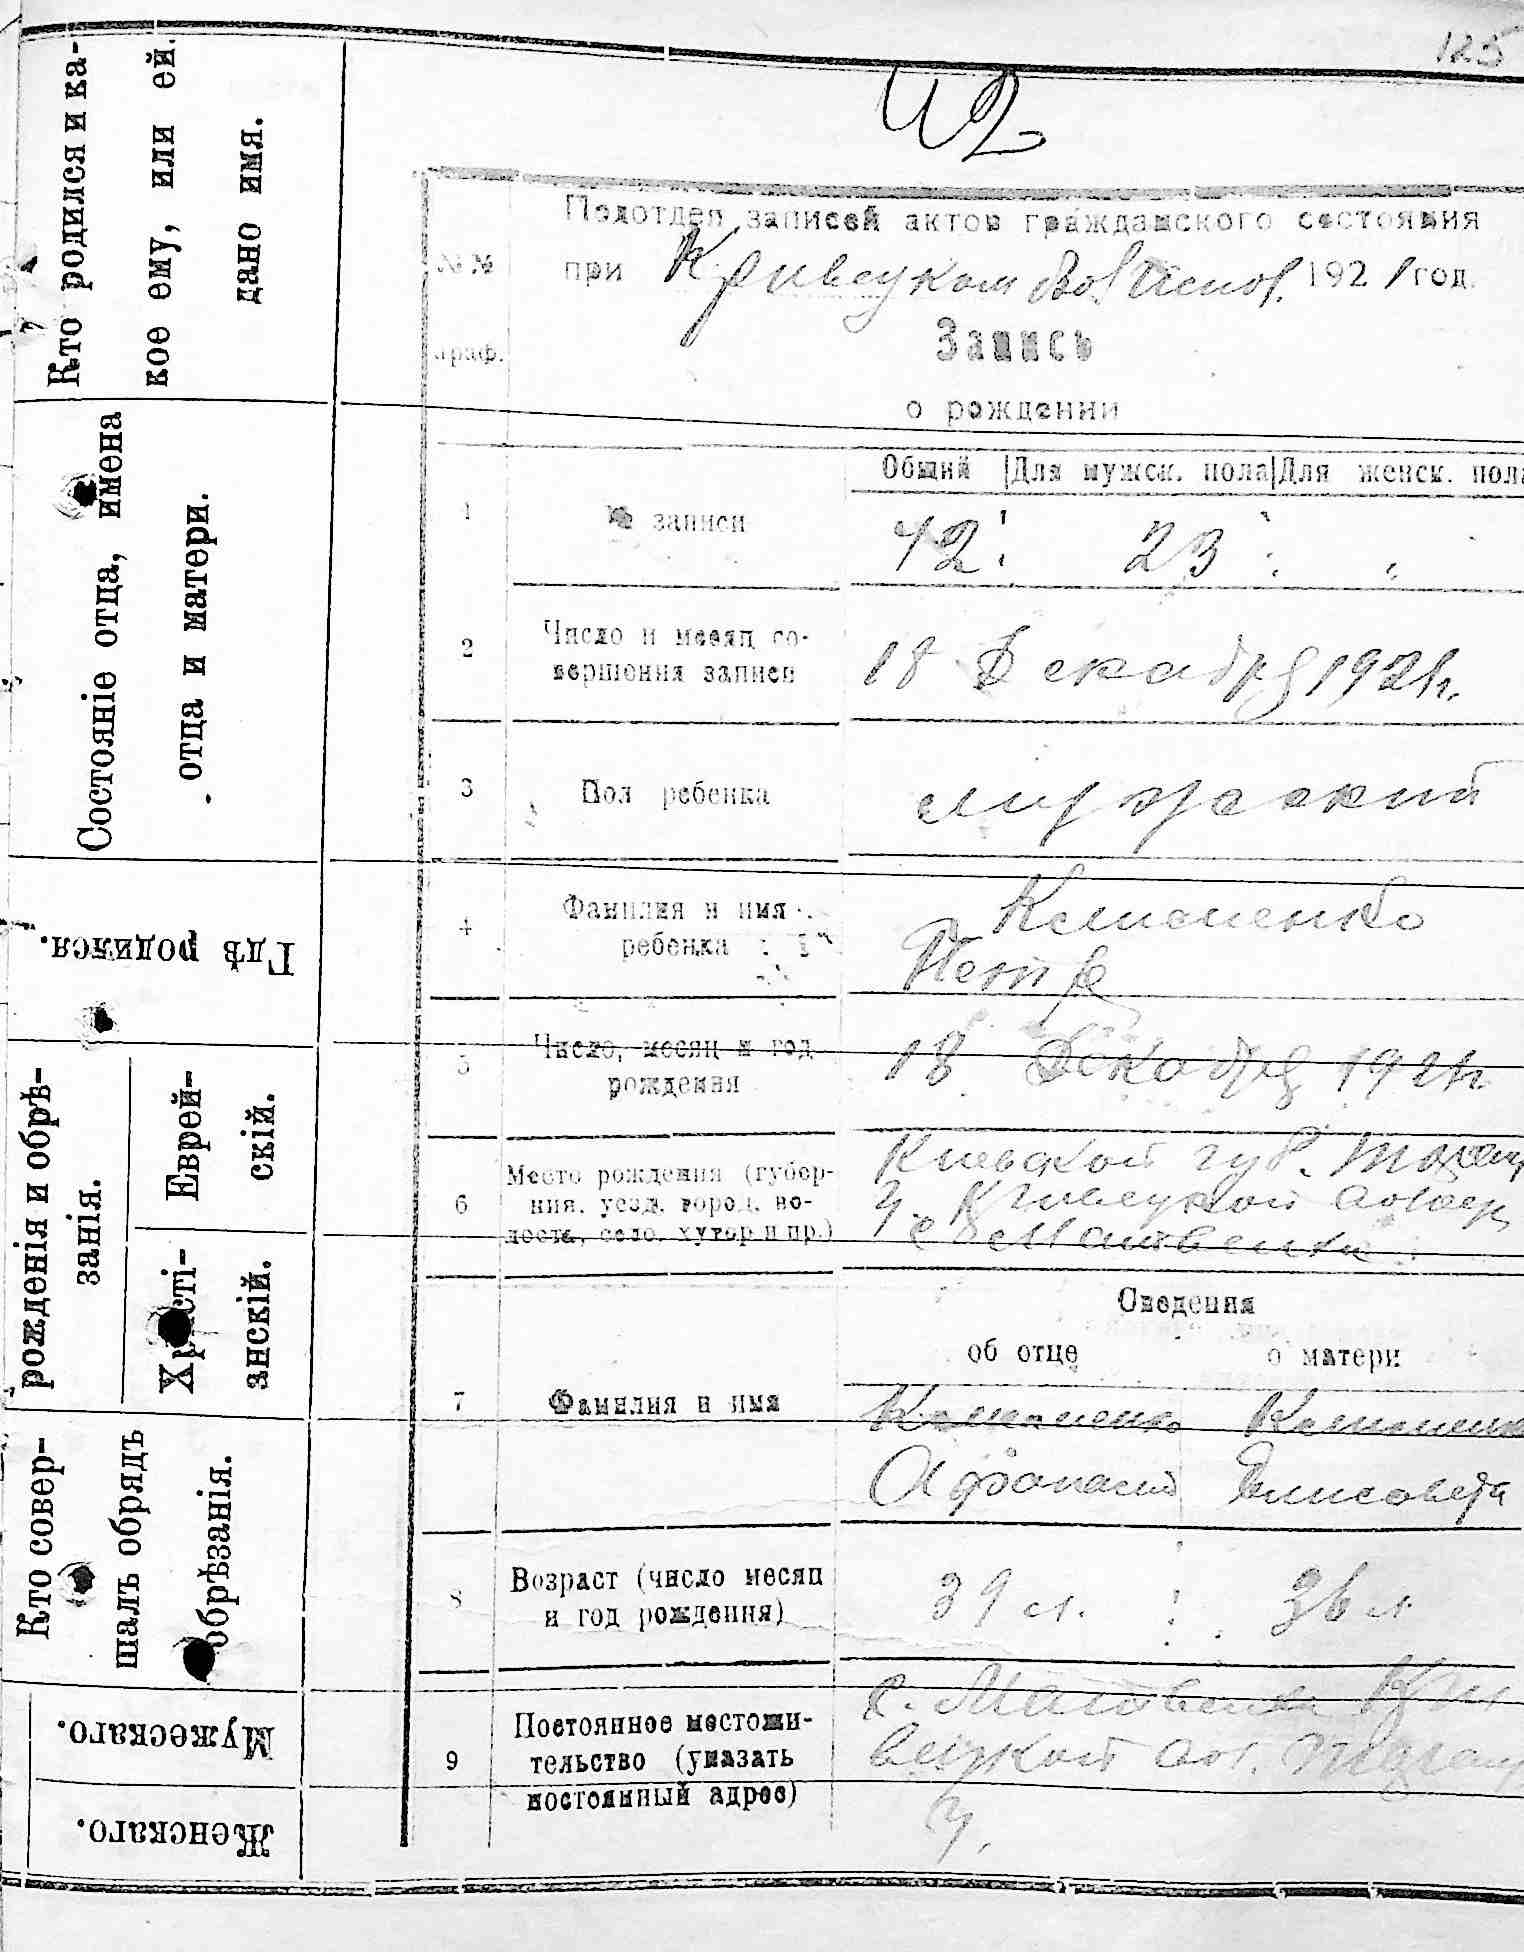 125
42
Кто родился и ка-
кое ему, или ей.
дано имя.
Состояніе отца, имена
отца и матери.
Гдѣ родился.
рожденія и обрѣ-
занія.
Еврей-
скій.
Христі-
анскій.
Кто совер-
шалъ обрядъ
обрѣзанія.
Мужескаго.
Женскаго.
№№
граф.
Подотдел записей актов гражданского состояния
при Кривецком Вол. 1921 год.
Запись
о рождении
Общий Для мужск. пола Для женск. пола
1 № записи 42 23
2 Число и месяц со-
вершения записи
18 Декабря 1921 г.
3 Пол ребенка мужской
4 Фамилия и имя
ребенка
Петр
5 Число, месяц и год
рождения
18 Декабря 1921 г.
6 Место рождения (губер-
ния, уезд, город, во-
лость, село, хутор и пр.)
Киевской губ.
у. Кривецкой
с. Матвеиха
Сведения
об отце о матери
7 Фамилия и имя
Афанасий Елисовета
8 Возраст (число месяц
и год рождения)
39 л. 36 л.
9 Постоянное местожи-
тельство (указать
постоянный адрес)
с. Матвеиха Кри
вецкой вол.
у.